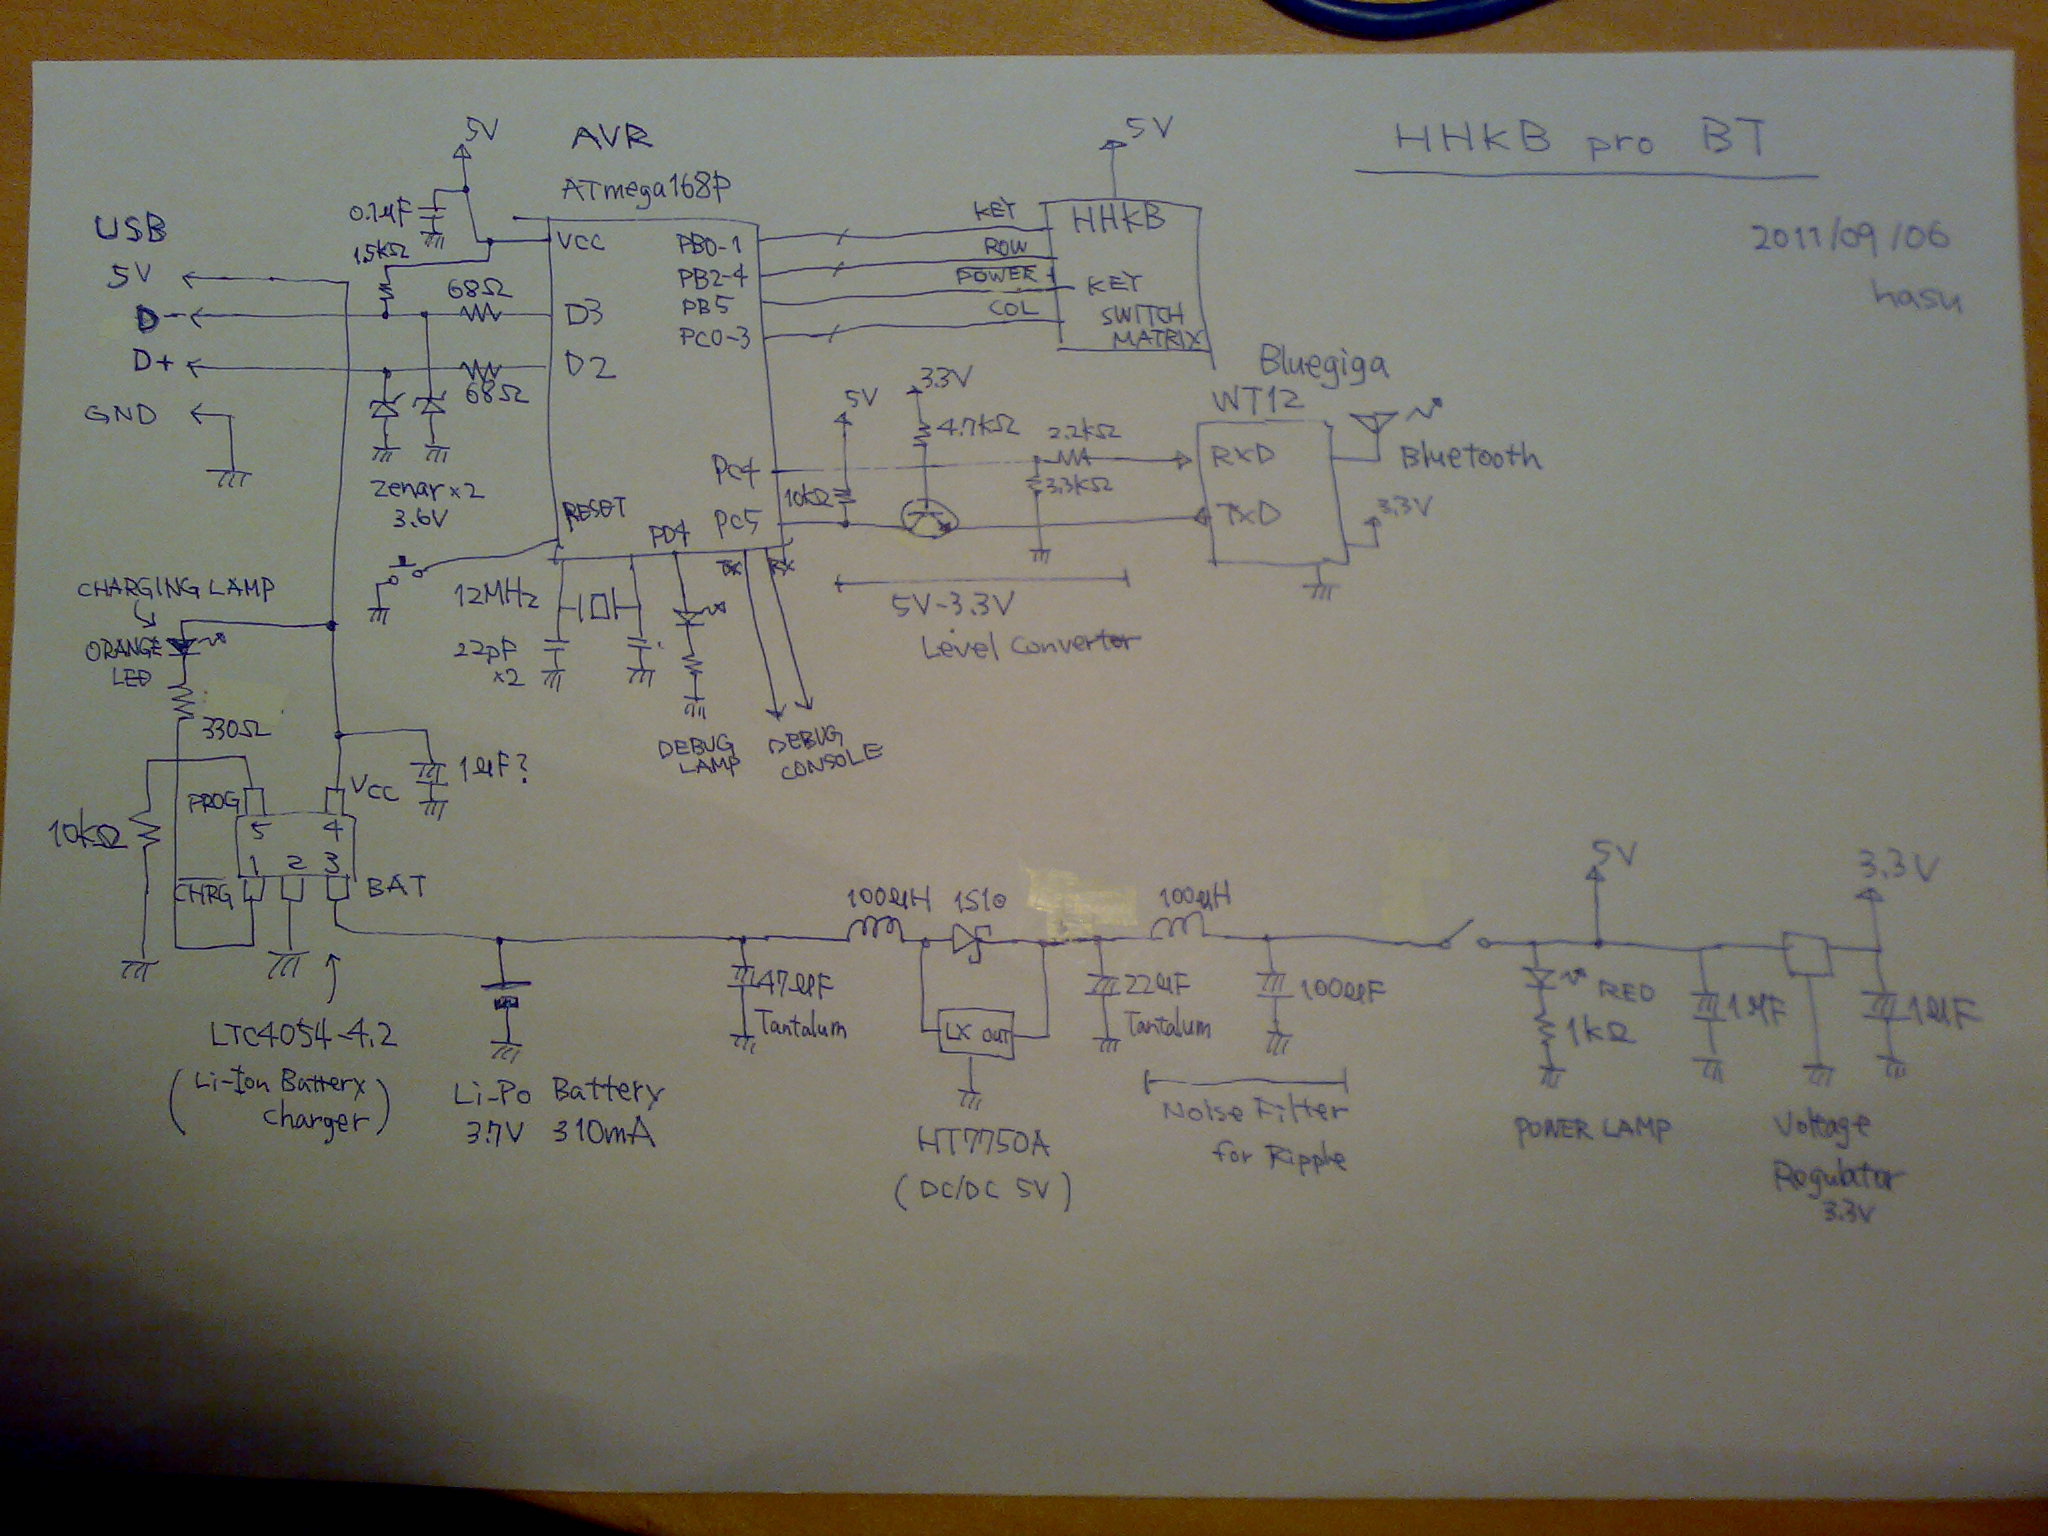 HHKB pro BT
2011/09/06
hasu
5V
AVR
ATmega168P
0.1μF
1.5kΩ
USB
5V
D-
D+
GND
68Ω
68Ω
Zenar x2
3.6V
VCC
D3
D2
RESET
PB0-1
PB2-4
PB5
PC0-3
PC4
PC5
PD4
TX
RX
KEY
ROW
POWER
COL
5V
HHKB
KEY
SWITCH
MATRIX
5V
10kΩ
3.3V
4.7kΩ
2.2kΩ
3.3kΩ
Bluegiga
WT12
RXD
TXD
Bluetooth
3.3V
5V-3.3V
Level Convertor
12MHz
22pF
x2
DEBUG
LAMP
DEBUG
CONSOLE
CHARGING LAMP
ORANGE
LED
330Ω
10kΩ
PROG
VCC
1μF?
5 4
1 2 3
CHRG
BAT
LTC4054-4.2
(Li-Ion Battery
charger)
Li-Po Battery
3.7V 310mA
47μF
Tantalum
100μH
1S10
LX OUT
HT7750A
(DC/DC 5V)
22μF
Tantalum
100μH
100μF
Noise Filter
for Ripple
5V
RED
1kΩ
POWER LAMP
1μF
3.3V
1μF
Voltage
Regulator
3.3V